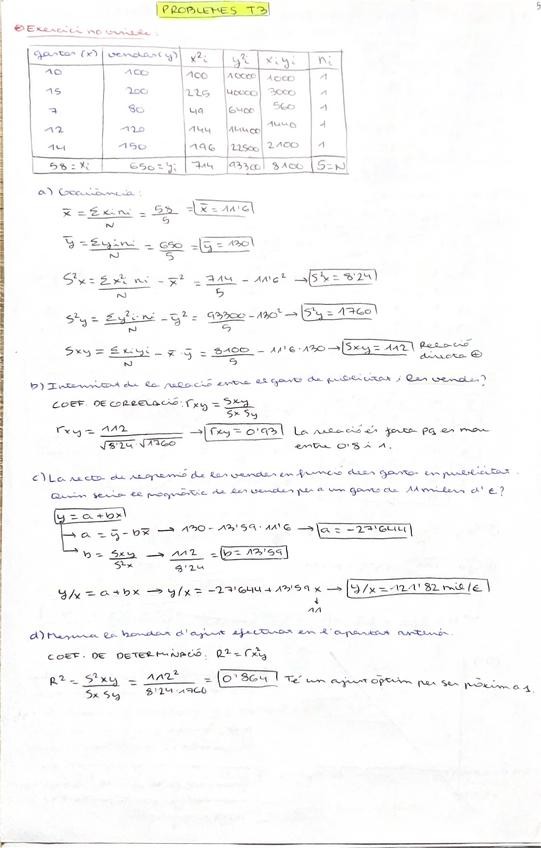 PROBLEMES T3
5
Exercici no
gastos (x) vendas (y) x²i y²i xiyi ni
10 100 100 10000 1000 1
15 200 225 40000 3000 1
7 80 49 6400 560 1
12 120 144 14400 1440 1
14 150 196 22500 2100 1
58 = xi 650 = yi 714 93300 8100 5=N
a) Covariància:
x̄ = Σxini/N = 58/5 = x̄ = 11'6
ȳ = Σyini/N = 650/5 = ȳ = 130
S²x = Σx²i ni/N - x̄² = 714/5 - 11'6² → S²x = 8'24
S²y = Σy²i·ni/N - ȳ² = 93300/5 - 130² → S²y = 1760
Sxy = Σxiyi/N - x̄·ȳ = 8100/5 - 11'6·130 → Sxy = 112 Relació directa ⊕
b) Intensitat de la relació entre el gasto de publicitat i les vendes?
COEF. DE CORRELACIÓ: rxy = Sxy/Sx Sy
rxy = 112/√8'24·√1760 → rxy = 0'93 La relació és forta pq es mou
entre 0'8 i 1.
c) La recta de regressió de les vendes en funció dels gastos en publicitat.
Quin seria el pronòstic de les vendes per a un gasto de 11 milers d'€?
y = a + bx
→ a = ȳ - bx̄ → 130 - 13'59·11'6 → a = -27'644
→ b = Sxy/S²x → 112/8'24 = b = 13'59
y/x = a + bx → y/x = -27'644 + 13'59 x → y/x = -121'82 mil/€
↓
11
d) Mesura la bondat d'ajust efectuat en l'apartat anterior.
COEF. DE DETERMINACIÓ: R² = r²xy
R² = S²xy/Sx Sy = 112²/8'24·1760 = 0'864 Té un ajust òptim per ser pròxim a 1.